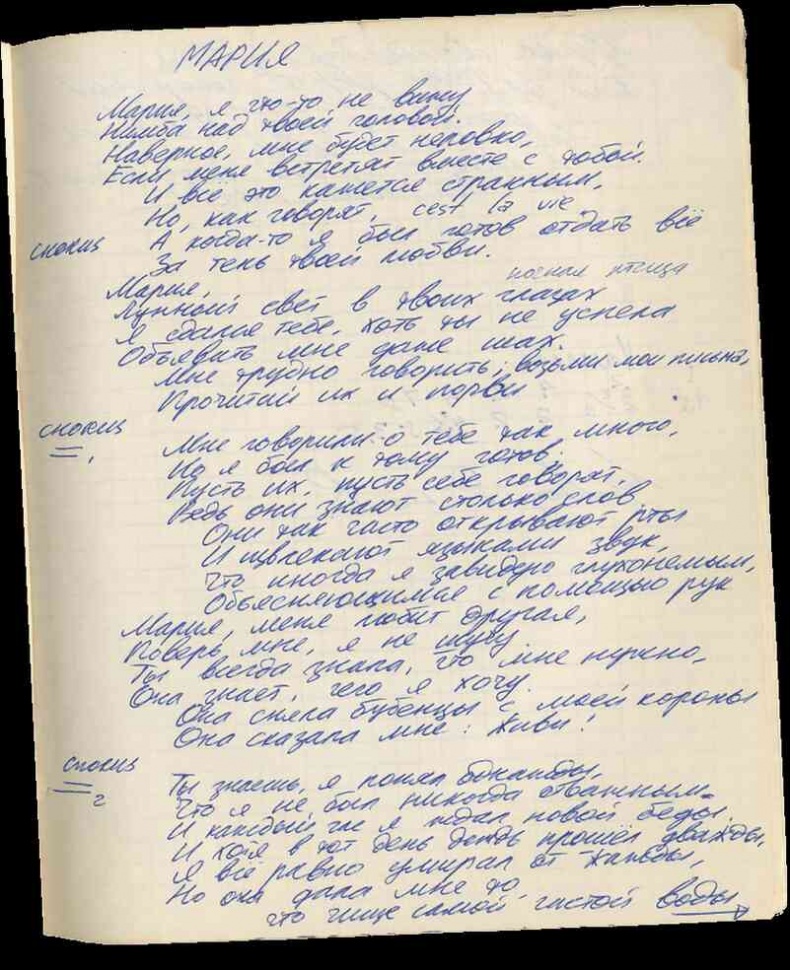 МАРИЯ
Мария, я что-то не вижу
Нимба над твоей головой.
Наверное, мне будет неловко,
Если меня встретят вместе с тобой.
И всё это кажется странным,
Но, как говорят, cest la vie
А когда-то я был готов отдать всё
За тень твоей любви.
Мария, птица
Лунный свет в твоих глазах
Я сдался тебе, хоть ты не успела
Объявить мне даже шах.
Мне трудно говорить; возьми мои письма,
Прочитай их и порви
Мне говорили о тебе так много,
Но я был к тому готов.
Пусть их, пусть себе говорят,
Ведь они знают столько слов.
Они так часто открывают рты
И извлекают языками звук,
Что иногда я завидую глухонемым,
Объясняющимся с помощью рук
Мария, меня любит другая,
Поверь мне, я не шучу
Ты всегда знала, что мне нужно,
Она знает, чего я хочу.
Она сняла бубенцы с моей короны
Она сказала мне: Живи!
2
Ты знаешь, я понял однажды,
Что я не был никогда отважным
И каждый час я ждал новой беды.
И хотя в тот день дождь прошёл дважды,
Я всё равно умирал от жажды,
Но она дала мне то,
что чище самой чистой воды